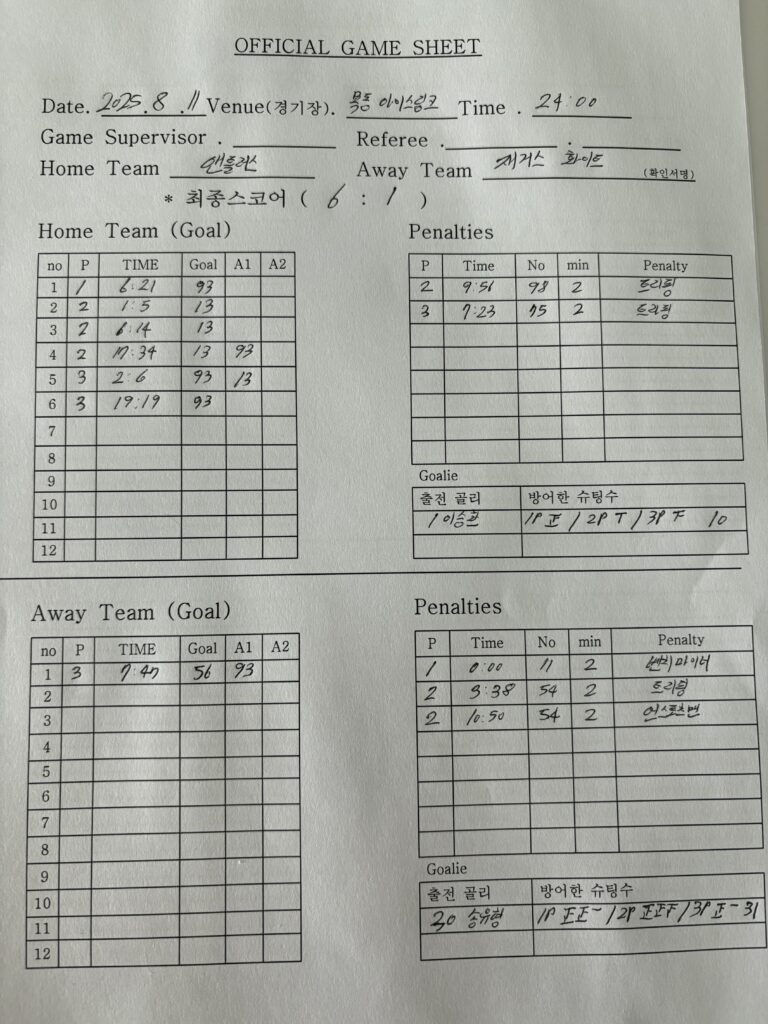 OFFICIAL GAME SHEET
Date. 2025.8.11 Venue(경기장). 목동 아이스링크 Time . 24:00
Game Supervisor . Referee . .
Home Team 앤틀러스 Away Team 재거스 화이트 (확인서명)
* 최종스코어 ( 6 : 1 )
Home Team (Goal)
no P TIME Goal A1 A2
1 1 6:21 93
2 2 1:5 13
3 2 6:14 13
4 2 17:34 13 93
5 3 2:6 93 13
6 3 19:19 93
7
8
9
10
11
12
Penalties
P Time No min Penalty
2 9:51 98 2 트리핑
3 7:23 75 2 트리핑
Goalie
출전 골리 방어한 슈팅수
1 이승훈 1P 正 / 2P T / 3P 下 10
Away Team (Goal)
no P TIME Goal A1 A2
1 3 7:47 56 93
2
3
4
5
6
7
8
9
10
11
12
Penalties
P Time No min Penalty
1 0:00 11 2 벤치마이너
2 3:38 54 2 트리핑
2 10:50 54 2 언스포츠맨
Goalie
출전 골리 방어한 슈팅수
30 송유형 1P 正正一 / 2P 正正下 / 3P 正一 31